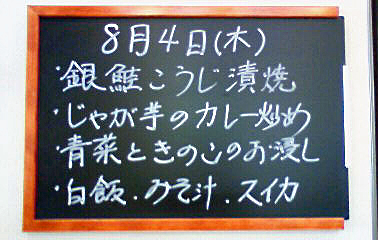 8月4日(木)
・銀鮭こうじ漬焼
・じゃが芋のカレー炒め
・青菜ときのこのお浸し
・白飯.みそ汁.スイカ